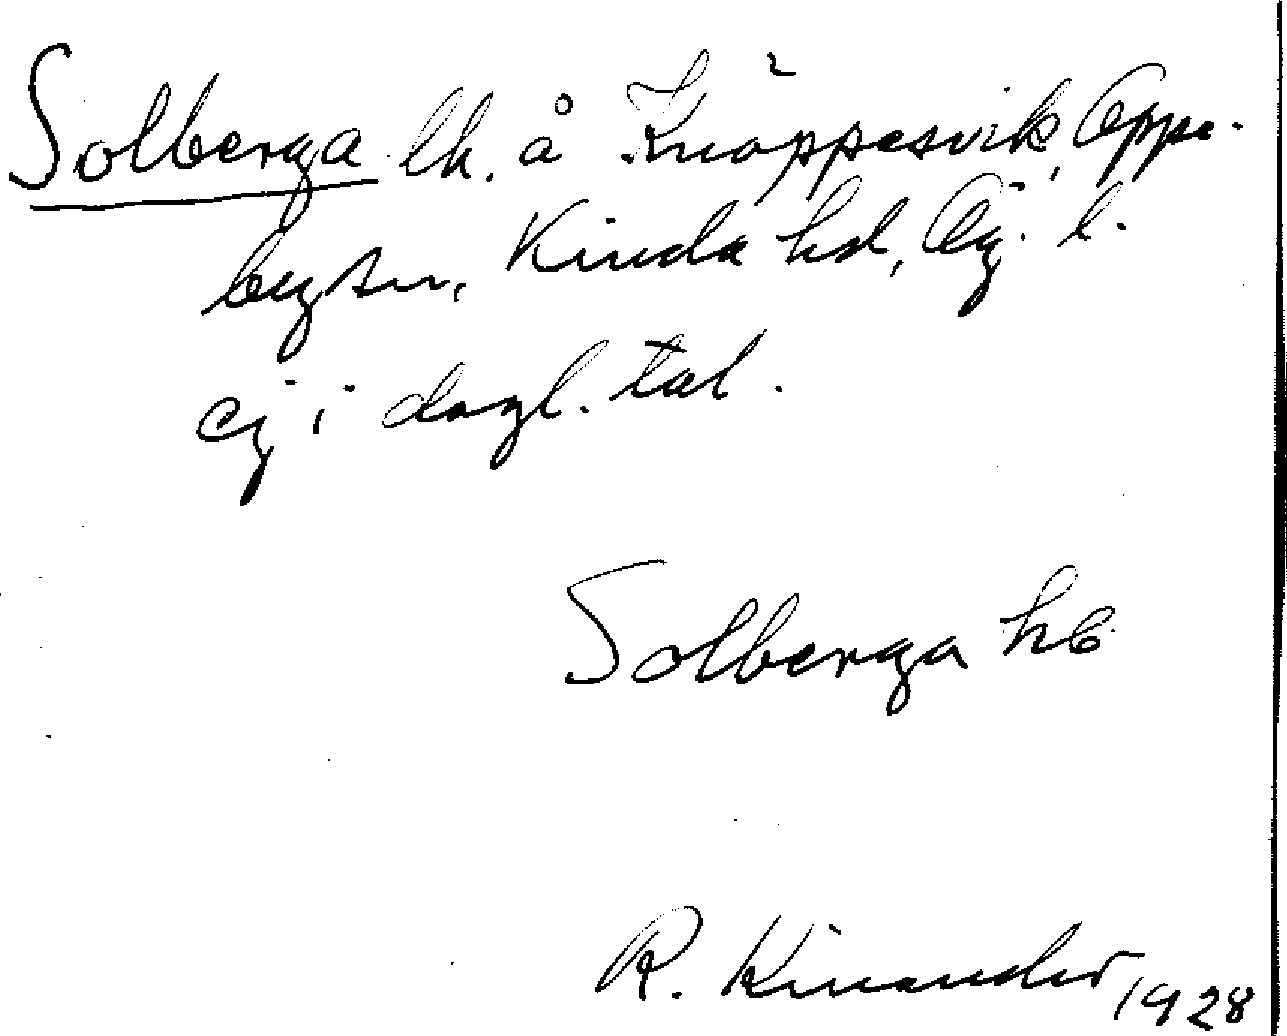 Solberga lh. å Knäppesvik, Oppe-
by sn, Kinda hd, Ög. l.
ej i dagl. tal.
Solberga hb
R. Kinander 1928